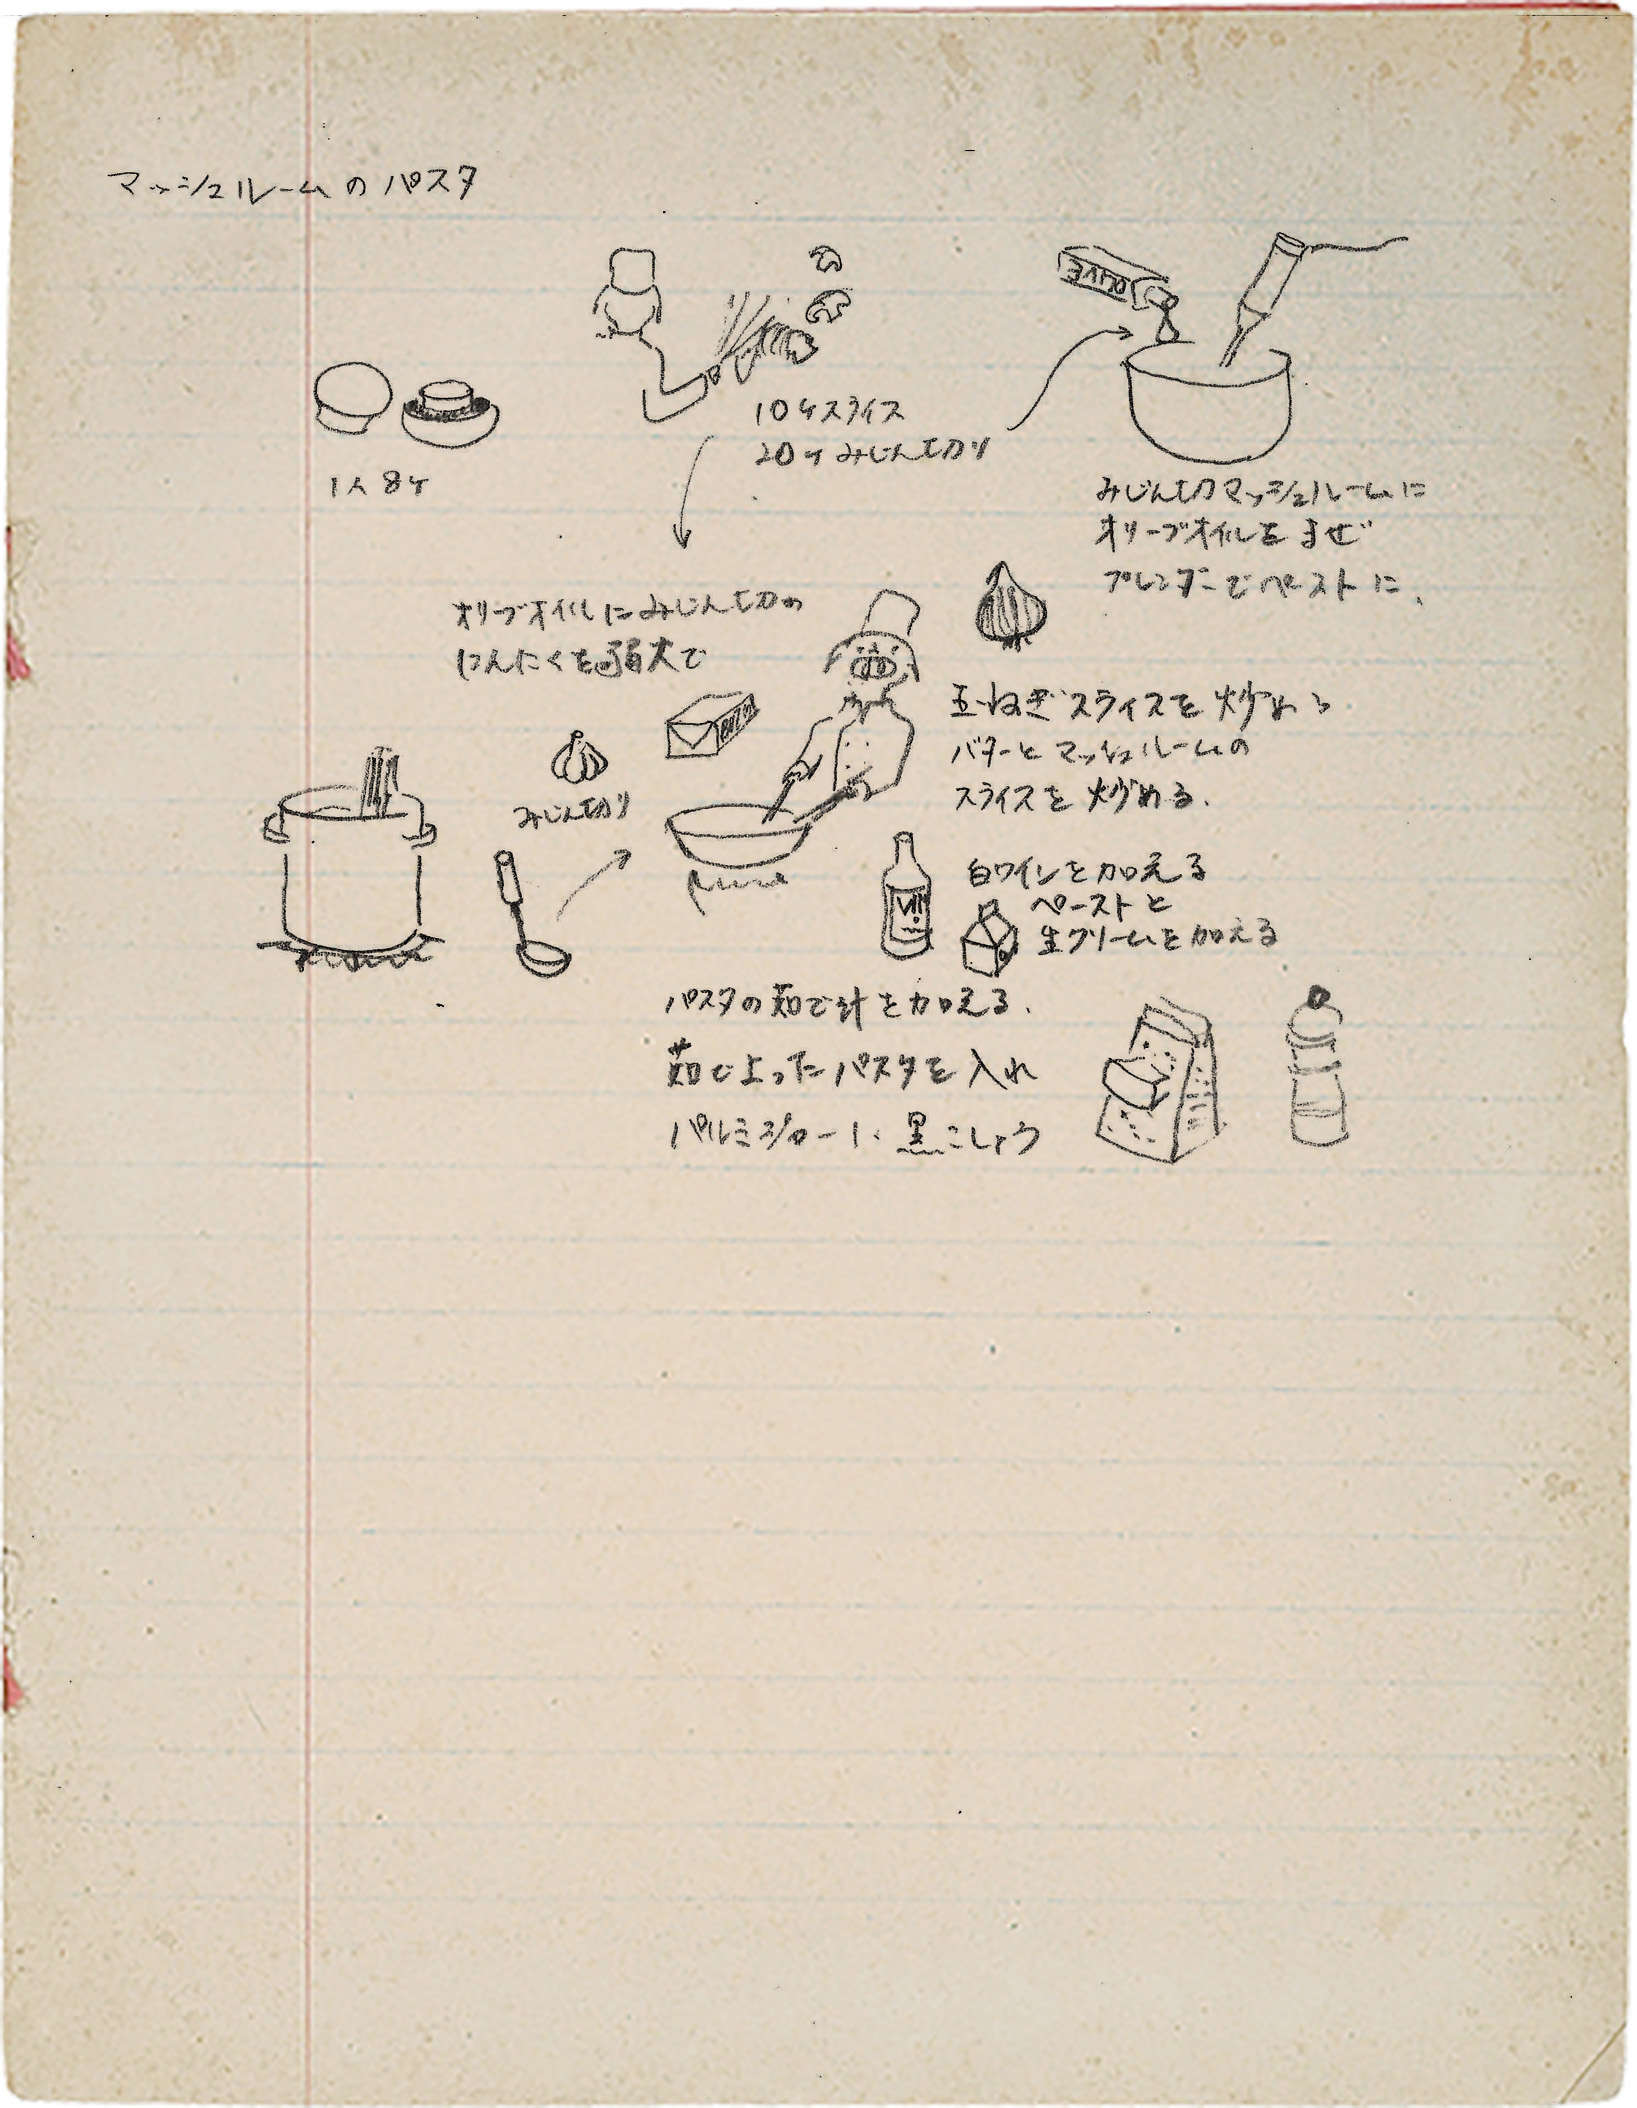 マッシュルームのパスタ
1人8ケ
10ケスライス
20ケみじん切り
OLIVE
みじん切マッシュルームに
オリーブオイルをまぜ
ブレンダーでペーストに、
オリーブオイルにみじん切の
にんにくを弱火で
みじん切り
玉ねぎスライスを炒める
バターとマッシュルームの
スライスを炒める.
白ワインを加える
ペーストと
生クリームを加える
パスタの茹で汁を加える.
茹で上ったパスタを入れ
パルミジャーノ・黒こしょう